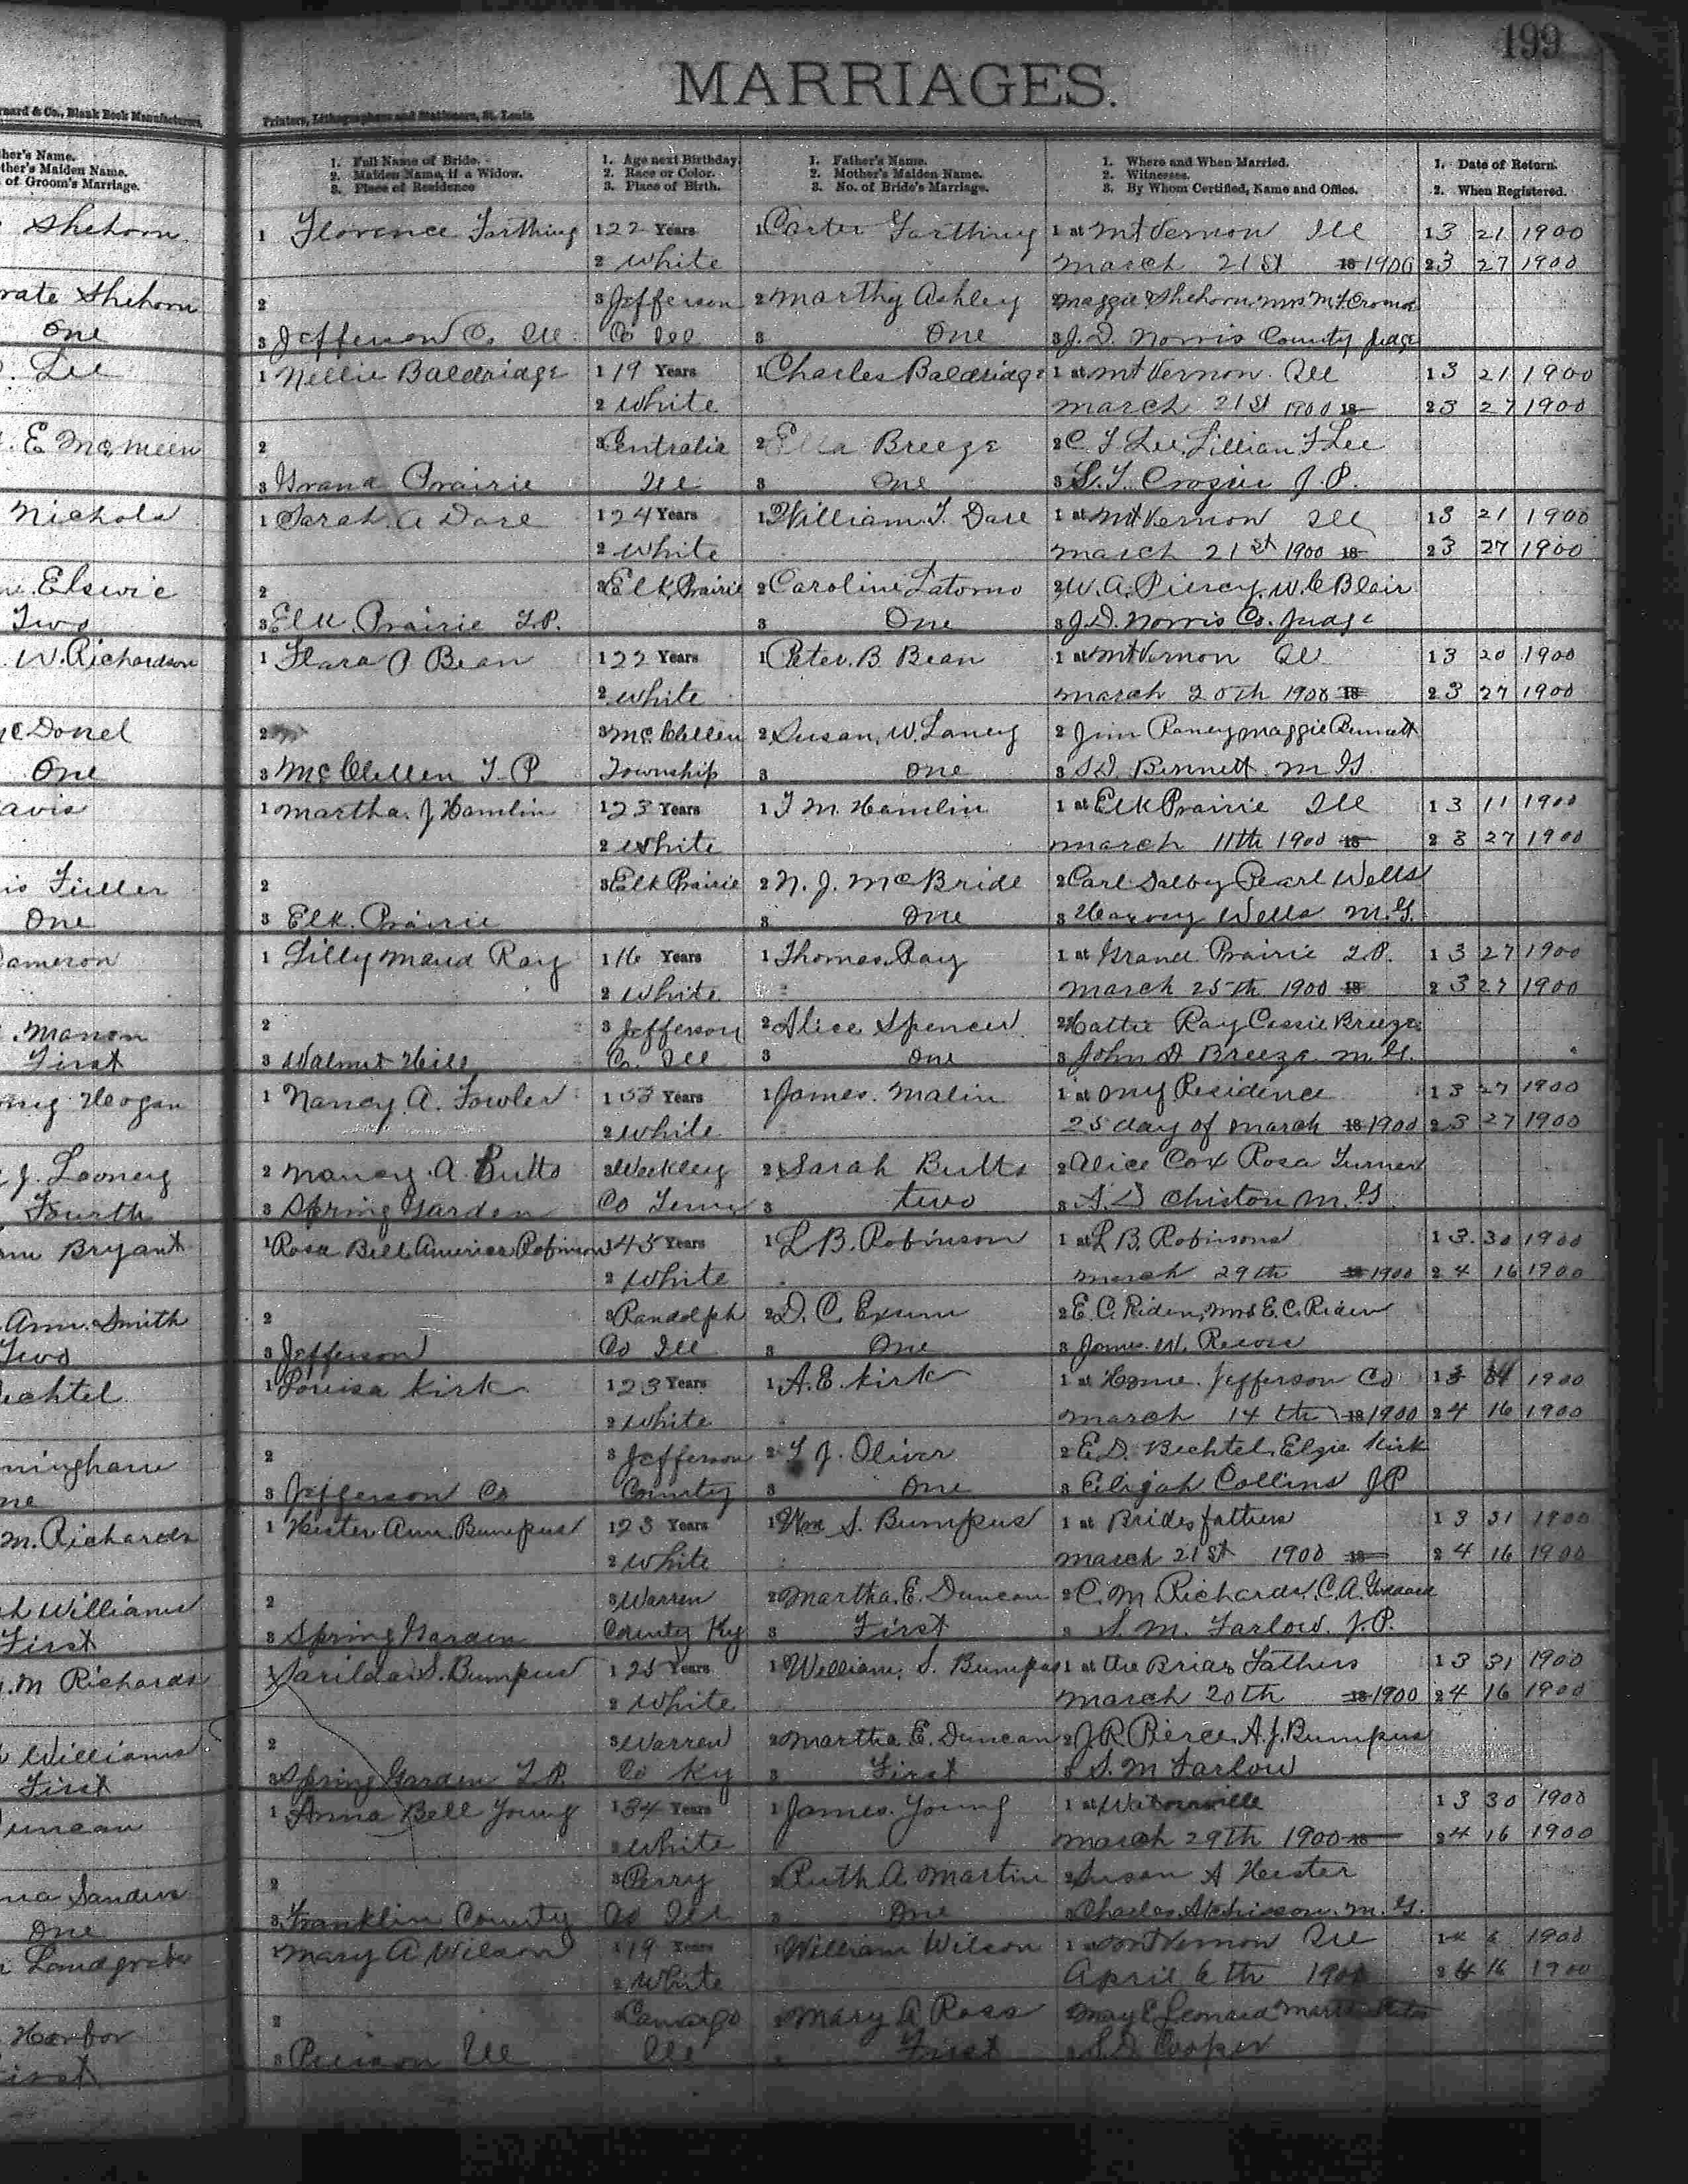 199
MARRIAGES.
nard & Co., Blank Book Manufacturers, Printers, Lithographers and Stationers, St. Louis.
her's Name. 1. Full Name of Bride. 1. Age next Birthday. 1. Father's Name. 1. Where and When Married. 1. Date of Return.
ther's Maiden Name. 2. Maiden Name, if a Widow. 2. Race or Color. 2. Mother's Maiden Name. 2. Witnesses.
of Groom's Marriage. 3. Place of Residence 3. Place of Birth. 3. No. of Bride's Marriage. 3. By Whom Certified, Name and Office. 2. When Registered.
Shehorn 1 Florence Farthing 1 22 Years 1 Carter Farthing 1 at Mt Vernon Ill 1 3 21 1900
2 White March 21st 18 1900 2 3 27 1900
rate Shehorn 2 3 Jefferson 2 Marthy Ashley 2 Maggie Shehorn, Mrs M
One 3 Jefferson Co Ill Co Ill 3 One 3 J. D. Norris County Judge
Lee 1 Nellie Baldridge 1 19 Years 1 Charles Baldridge 1 at Mt Vernon Ill 1 3 21 1900
2 White March 21st 1900 18 2 3 27 1900
E McMeen 2 3 Centralia 2 Ella Breeze 2 C F Lee, Lillian F Lee
3 Grand Prairie Ill 3 One 3 S. T. Crosier J. P.
Nichols 1 Sarah A Dare 1 24 Years 1 William T. Dare 1 at Mt Vernon Ill 1 3 21 1900
2 White March 21st 1900 18 2 3 27 1900
Elswic 2 3 Elk Prairie 2 Caroline Latomo 2 W. A. Piercy, W. C Blair
Two 3 Elk Prairie T.P. 3 One 3 J. D. Norris Co. Judge
W. Richardson 1 Flara O Bean 1 22 Years 1 Peter B Bean 1 at Mt Vernon Ill 1 3 20 1900
2 White March 20th 1900 18 2 3 27 1900
McDonel 2 3 McClellen 2 Susan W. Laney 2 Jim Raney Maggie Bennett
One 3 McClellen T P Township 3 One 3 S. D. Bennett M G
avis 1 Martha J Hamlin 1 23 Years 1 T M. Hamlin 1 at Elk Prairie Ill 1 3 11 1900
2 White March 11th 1900 18 2 3 27 1900
is Fuller 2 3 Elk Prairie 2 N. J. McBride 2 Carl Salby Pearl Wells
One 3 Elk Prairie 3 One 3 Harvey Wells M. G.
Cameron 1 Lilly Maud Ray 1 16 Years 1 Thomas Ray 1 at Grand Prairie T.P. 1 3 27 1900
2 White March 25th 1900 18 2 3 27 1900
Manon 2 3 Jefferson 2 Alice Spencer 2 Hattie Ray Cassie Breeze
First 3 Walnut Hill Co. Ill 3 One 3 John A Breeze M. G.
Hogan 1 Nancy A. Fowler 1 53 Years 1 James Malin 1 at My Residence 1 3 27 1900
2 White 25 day of March 18 1900 2 3 27 1900
J. Looney 2 Nancy A. Butts 3 Weekley 2 Sarah Butts 2 Alice Cox Rosa Turner
Fourth 3 Spring Garden Co Tenn 3 two 3 A. D Chiston M. G
Bryant 1 Rosa Bell America Robinson 1 45 Years 1 L B. Robinson 1 at L B. Robinsons 1 3 30 1900
2 White March 29th 18 1900 2 4 16 1900
Ann Smith 2 3 Randolph 2 D. C. Exum 2 E. C. Riden, Mrs E. C. Riden
Two 3 Jefferson Co Ill 3 One 3 James W.
echtel 1 Louisa Kirk 1 23 Years 1 A. E. Kirk 1 at Home Jefferson Co 1 3 1900
2 White March 14th 18 1900 2 4 16 1900
ningham 2 3 Jefferson 2 T J. Oliver 2 E. D. Bechtel, Elzie Kirk
ne 3 Jefferson Co County 3 One 3 Elijah Collins J P
M. Richards 1 Hester Ann Bumpus 1 23 Years 1 Wm S. Bumpus 1 at Brides fathers 1 3 31 1900
2 White March 21st 1900 18 2 4 16 1900
Williams 2 3 Warren 2 Martha. E. Duncan 2 C. M Richards, C. A.
First 3 Spring Garden County Ky 3 First 3 S. M. Farlow. J. P.
M Richards 1 Sarilda S. Bumpus 1 25 Years 1 William S. Bumpus 1 at the Brides Fathers 1 3 31 1900
2 White March 20th 18 1900 2 4 16 1900
Williams 2 3 Warren 2 Martha E. Duncan 2 J. R. Pierce, A. J. Bumpus
First 3 Spring Garden T.P. Co Ky 3 First 3 S. M Farlow
uncan 1 Anna Bell Young 1 34 Years 1 James Young 1 at 1 3 30 1900
2 White March 29th 1900 18 2 4 16 1900
na Sanders 2 3 Perry 2 Ruth A. Martin 2 Susan A Hester
One 3 Franklin County Co Ill 3 One 3 Charles Atchisson M. G.
Landgrebe 1 Mary A Wilson 1 19 Years 1 William Wilson 1 at Mt Vernon Ill 1 4 6 1900
2 White April 6th 1900 2 4 16 1900
Harbor 2 3 Camargo 2 Mary A Ross 2 May E Leonard
irst 3 Ill Ill 3 First 3 S. D. Cooper